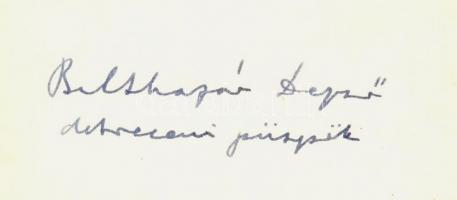 Balthazár Dezső
debreceni püspök